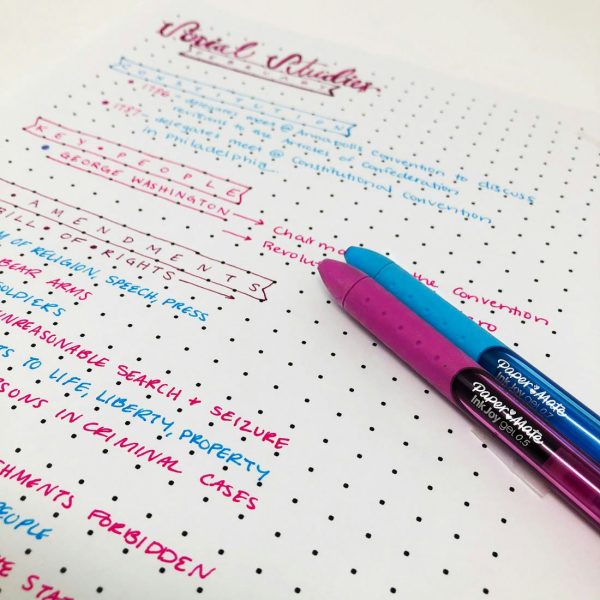 Social Studies
FEBRUARY
CONSTITUTION
• 1786 - delegates meet @ Annapolis convention to discuss
revisions to the Articles of Confederation
• 1787 - delegates meet @ Constitutional Convention
in Philadelphia
KEY • PEOPLE
• GEORGE WASHINGTON → Chairma the Convention
→ Revolu ero
AMENDMENTS
BILL • OF • RIGHTS
OF RELIGION, SPEECH, PRESS
BEAR ARMS
SOLDIERS
UNREASONABLE SEARCH + SEIZURE
TS TO LIFE, LIBERTY, PROPERTY
SONS IN CRIMINAL CASES
SHMENTS FORBIDDEN
PEOPLE
HE STAT
Paper Mate
InkJoy gel 0.7
Paper Mate
InkJoy gel 0.5